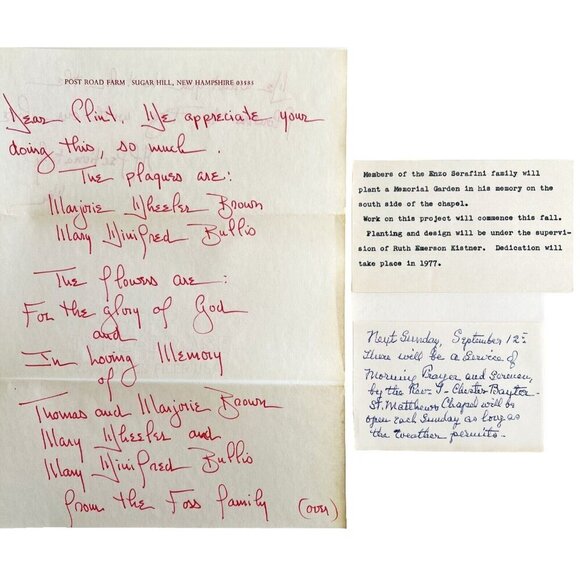 POST ROAD FARM SUGAR HILL, NEW HAMPSHIRE 03585
Dear Clint. We appreciate your
doing this, so much.
The plaques are:
Marjorie Wheeler Brown
Mary Winifred Bullis
The flowers are:
For the glory of God
and
In Loving Memory
of
Thomas and Marjorie Brown
Mary Wheeler and
Mary Winifred Bullis
from the Foss family (over)
Members of the Enzo Serafini family will
plant a Memorial Garden in his memory on the
south side of the chapel.
Work on this project will commence this fall.
Planting and design will be under the supervi-
sion of Ruth Emerson Kistner. Dedication will
take place in 1977.
Next Sunday, September 12-
there will be a Service of
Morning Prayer and Sermon,
by the Rev. J- Chester Baxter-
St. Matthews Chapel will be
open each Sunday as long as
the weather permits-